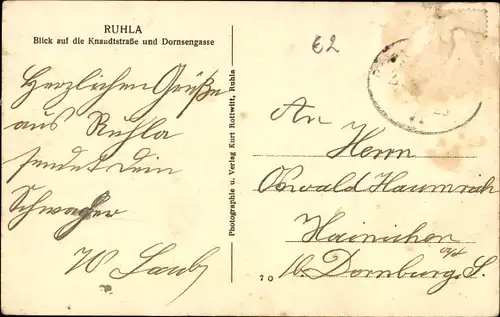 RUHLA
Blick auf die Knaudtstraße und Dornsengasse
€2
Herzlichen Grüße
aus Ruhla
sendet Dein
Schwager
W Laub
Photographie u. Verlag Kurt Rottwitt, Ruhla
An
Herrn
Oswald Haumrich
Hainichen
70
b. Dornburg S.